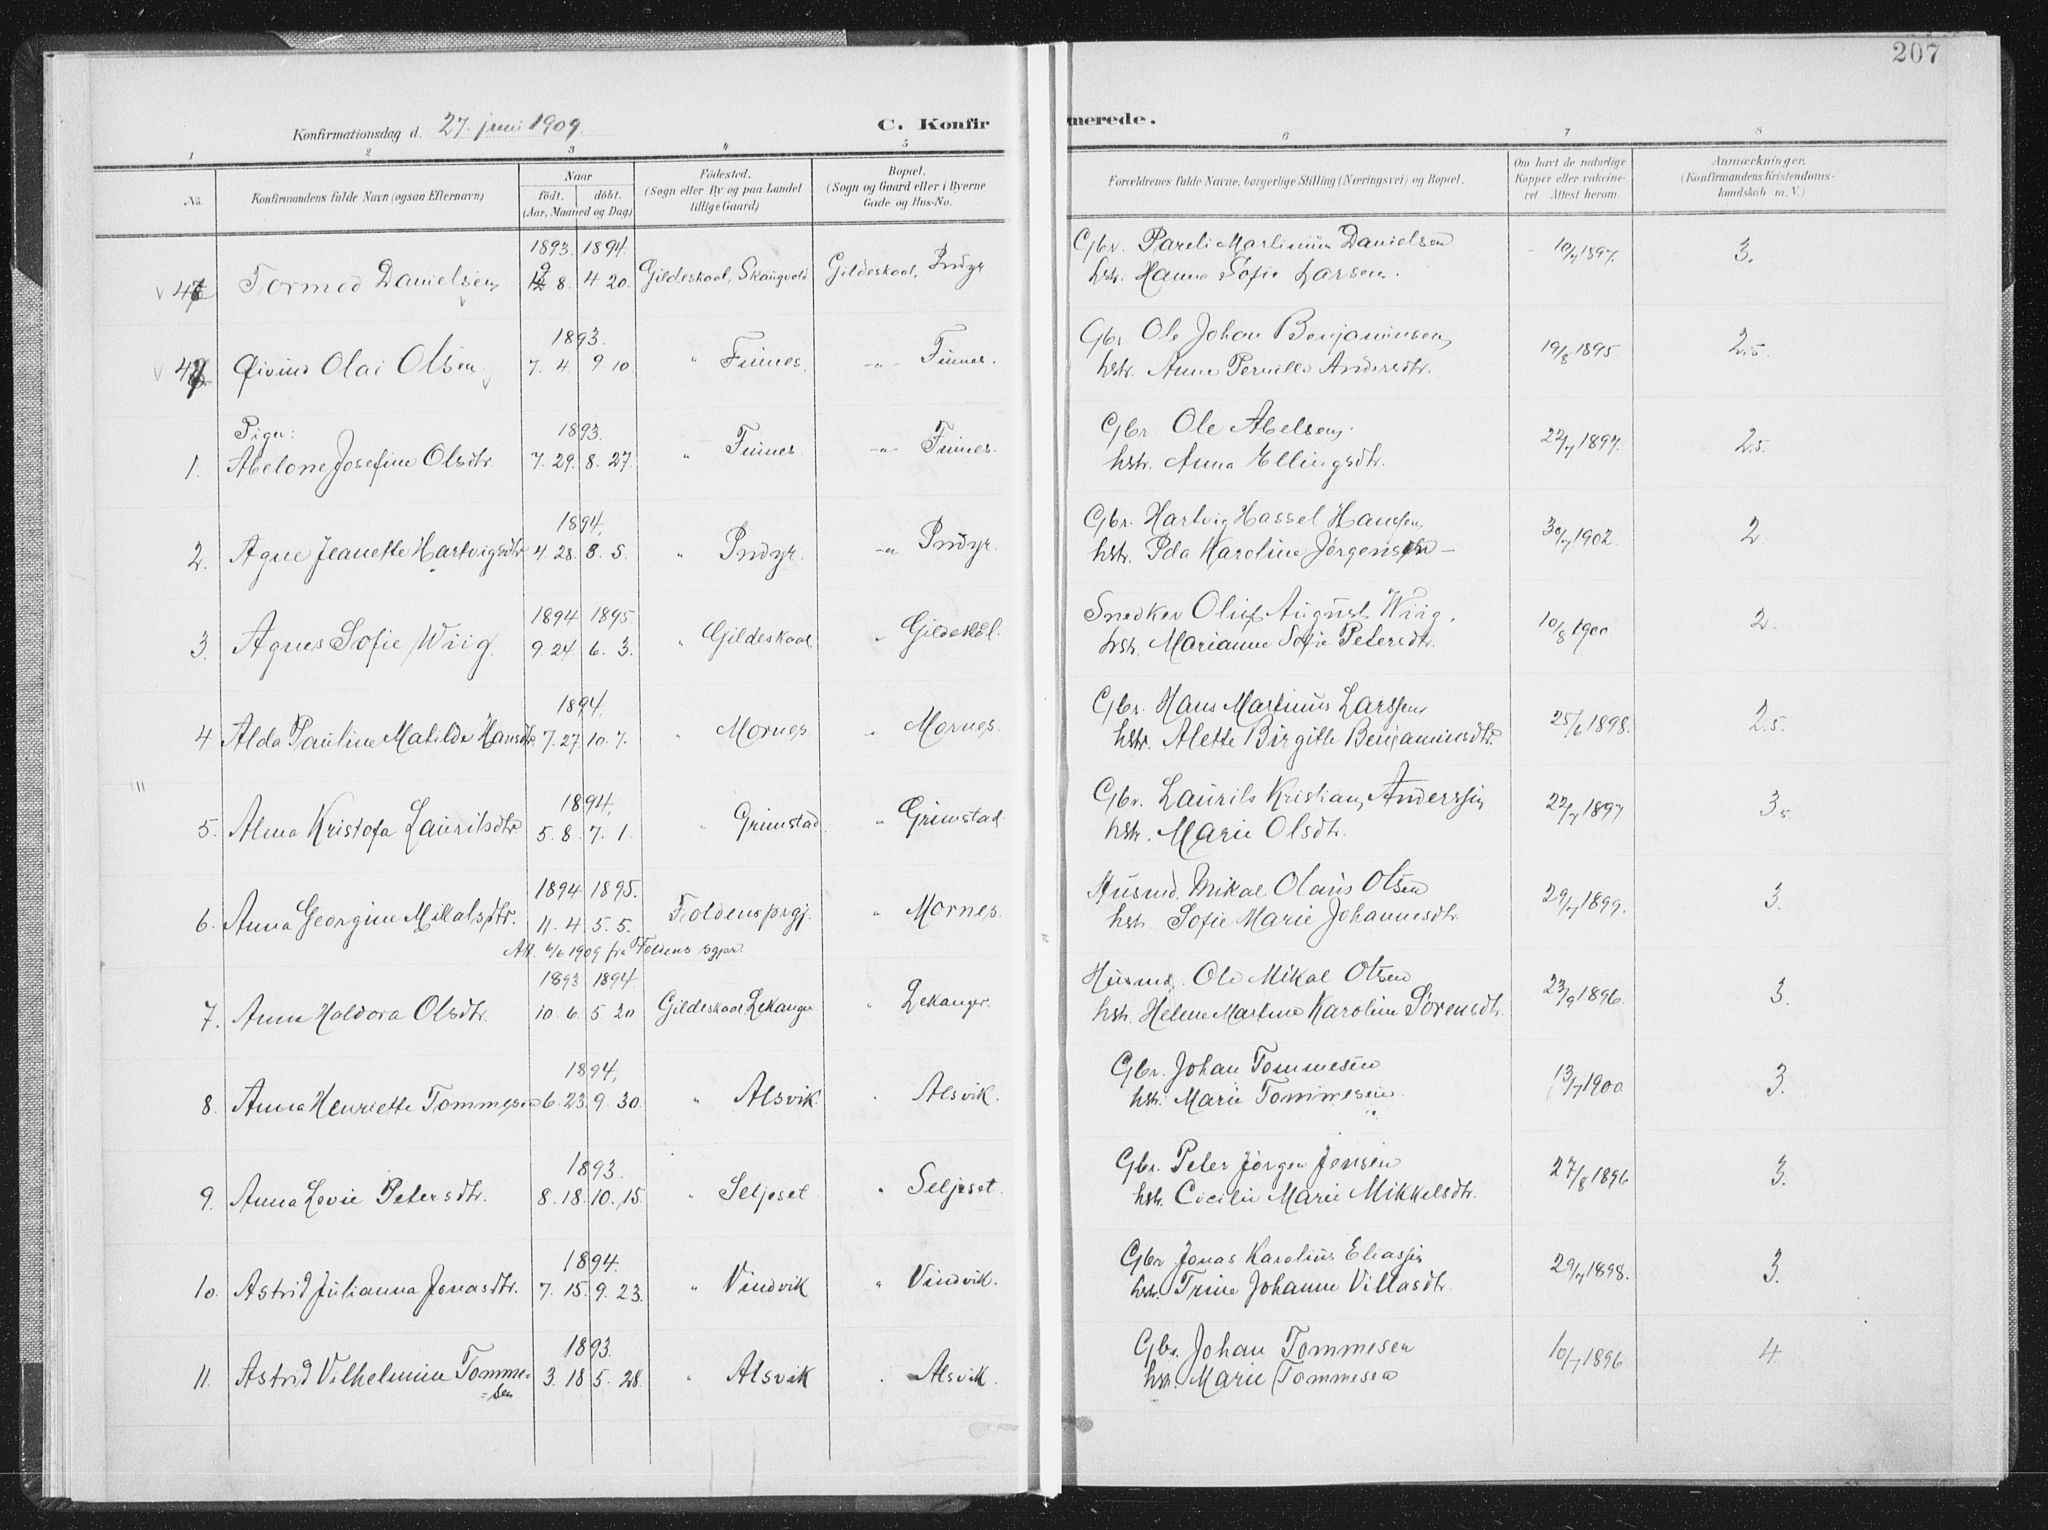 207
Konfirmationsdag d. 27. juni 1909.
C. Konfirmerede.
1 2 3 4 5 6 7 8
No. Konfirmandens fulde Navn (ogsaa Efternavn) Naar født. døbt. (Aar, Maaned og Dag) Fødested. (Sogn eller By og paa Landet tillige Gaard) Bopæl. (Sogn og Gaard eller i Byerne Gade og Hus-No. Forældrenes fulde Navne, borgerlige Stilling (Næringsvei) og Bopæl. Om havt de naturlige Kopper eller vakcineret. Attest herom. Anmærkninger. (Konfirmandens Kristendomskundskab m. V.)
1893. 1894. Gbr. Pareli Martinius Danielsen
Tormod Danielsen 8. 4 20. Gildeskaal, Skaugvold Gildeskaal, Indyr hstr. Hanna Sofie Larsen. 10/7 1897. 3.
1893. Gbr. Ole Johan Benjaminsen
47 Øivind Olai Olsen 7. 4 9 10 " Finnes. -"- Finnes. hstr. Anne Pernille Andersdtr. 19/8 1895 2.5.
Piger: 1893. Gbr. Ole Abelsen.
1. Abelone Josefine Olsdtr. 7. 29. 8. 27. " Finnes -"- Finnes. hstr. Anna Ellingsdtr. 22/7 1897. 2.5.
1894. Gbr. Hartvig Hassel Hanssen,
2. Agne Jeanette Hartvigsdtr 4 28. 8. 5. " Indyr. -"- Indyr. hstr. Ida Karoline Jørgensen - 30/7 1902. 2
1894 1895. Snedker Oluf August Wiig,
3. Agnes Sofie Wiig. 9. 24 6. 3. " Gildeskaal. " Gildeskål. hstr. Marianne Sofie Petersdtr. 10/8 1900 2.
1894. Gbr. Hans Martinus Larssen,
4. Alda Pauline Matilde Hansdtr 7. 27. 10. 7. " Mornes. " Mornes. hstr. Alette Birgitte Benjaminsdtr. 25/6 1898. 2.5.
1894. Gbr. Laurits Kristian Anderssen
5. Alma Kristofa Lauritsdtr 5. 8. 7. 1. " Grimstad. " Grimstad hstr. Marie Olsdtr. 22/7 1897 3.
1894 1895. Husmd. Mikal Olaus Olsen
6. Anna Georgine Mikalsdtr. 11. 4. 5. 5. Foldens prgj. " Mornes. hstr. Sofie Marie Johannesdtr. 29/7 1899. 3.
Att. 6/6 1909 fra Foldens sgpr.
1893 1894. Husmd. Ole Mikal Olsen
7. Anna Haldora Olsdtr. 10. 6. 5 20 Gildeskaal Lekanger " Lekanger. hstr. Helene Martine Karoline Sørensdtr. 23/9 1896. 3.
1894. Gbr. Johan Tommesen
8. Anna Henriette Tommesen 6. 23. 9. 30. " Alsvik. " Alsvik. hstr. Marie Tommesen. 13/7 1900 3.
1893. Gbr. Peter Jørgen Jensen
9. Anna Levie Petersdtr. 8. 18. 10. 15. " Seljeset " Seljeset. hstr. Cecilie Marie Mikkelsdtr. 27/8 1896 3.
1894. Gbr Jonas Karolius Eliassen
10. Astrid Julianna Jonasdtr. 7. 15. 9. 23. " Vindvik " Vindvik. hstr. Trine Johanne Villasdtr. 29/7 1898. 3.
1893. Gbr. Johan Tommesen
11. Astrid Vilhelmine Tomme- 3. 18 5. 28. " Alsvik " Alsvik. hstr. Marie Tommesen 10/7 1896 4.
=sen